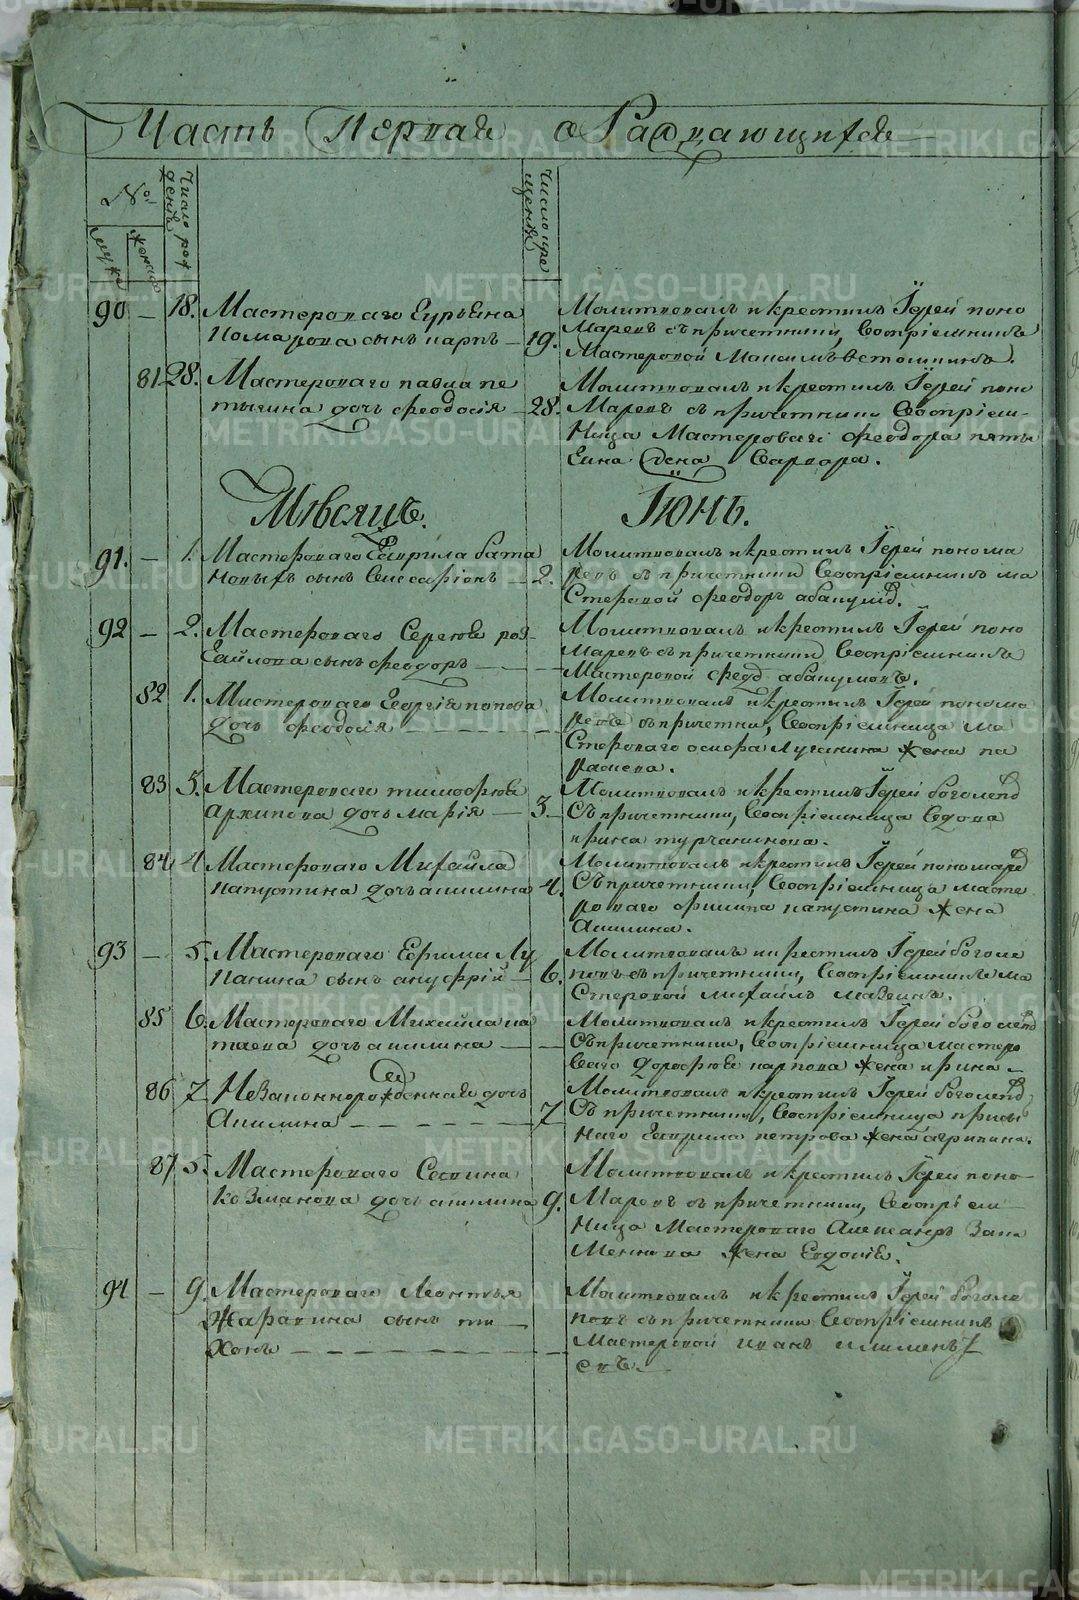 Часть Первая о Раждающихся
№
Число рож
дения
Число кре
щения
муж
женска
90 — 18. Мастероваго Гурьяна
сынъ карпъ — 19.
Молитвовалъ и крестилъ Їерей поно
Маревъ съ причетники, Восприемникъ
Мастеровой Максимъ
81. 28. Мастероваго павла пе
тыгина дочь феодосія — 28.
Молитвовалъ и крестилъ Їерей поно
Маревъ съ причетники Восприем-
Ница Мастероваго феодора пяты
гина жена Варвара.
Мѣсяцъ. Їюнь.
91. — 1. Мастероваго Гаврила бата
новыхъ сынъ Виссаріонъ — 2.
Молитвовалъ и крестилъ Їерей понома
ревъ съ причетники Восприемникъ ма
Стеровой феодоръ абакумовъ.
92 — 2. Мастероваго Сергея
сынъ феодоръ — —
Молитвовалъ и крестилъ Їерей поно
Маревъ съ причетники Восприемникъ
Мастеровой абакумовъ.
82 1. Мастероваго Георгія попова
дочь феодосія — — — —
Молитвовалъ и крестилъ Їерей понома
ревъ съ причетни, Восприемница ма
Стероваго Лучинина жена па
раскева.
83 3. Мастероваго тимофея
Архипова дочь марія — 3.
Молитвовалъ и крестилъ Їерей боголепов
Съ причетники, Восприемница Вдова
ирина турчанинова.
84 4 Мастероваго Михайла
капустина дочь акилина 4.
Молитвовалъ и крестилъ Їерей пономарев
Съ причетники, Восприемница масте
роваго филипа капустина жена
Акилина.
93 — 5. Мастероваго Ефима Лу
канина сынъ ануфрій — 6.
Молитвовалъ и крестилъ Їерей боголе
повъ съ причетники, Восприемникъ ма
Стеровой михайлъ мазеинъ.
85 6. Мастероваго Михайла ка
таева дочь акилина — —
Молитвовалъ и крестилъ Їерей боголепов
Съ причетники, Восприемница мастеро
ваго дорофея карпова жена ирина —
86 7 Незаконнорожденная дочь
Акилина — — — — 7
Молитвовалъ и крестилъ Їерей боголепов
Съ причетники, Восприемница
Гаврила петрова жена агрипина.
87 5. Мастероваго Саввина
Козманова дочь акилина 9.
Молитвовалъ и крестилъ Їерей поно-
Маревъ съ причетники, Восприем-
Ница Мастероваго Александръ
жена Евдокія.
94 — 9. Мастероваго Леонтья
Жаравина сынъ ти —
Хонъ — — — —
Молитвовалъ и крестилъ Їерей боголе
повъ съ причетники Восприемникъ
Мастеровой иванъ
METRIKI.GASO-URAL.RU